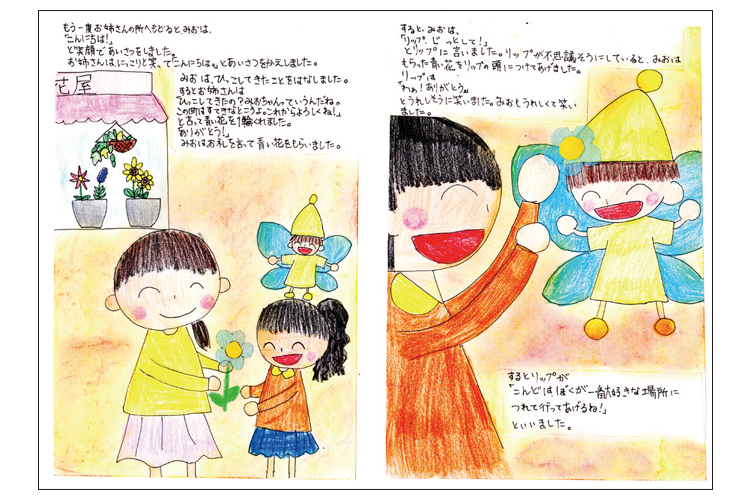 もう一度お姉さんの所へもどると、みおは、
「こんにちは!」
と笑顔であいさつをしました。
お姉さんは、にっこりと笑って「こんにちは。」とあいさつをかえしました。
みおは、ひっこしてきたことをはなしました。
するとお姉さんは
「ひっこしてきたの?みおちゃんっていうんだね。
この町はすてきなところよ。これからよろしくね!」
と言って青い花を1輪くれました。
「ありがとう!」
みおは、お礼を言って青い花をもらいました。
花屋
すると、みおは、
「リップ、じっとして!」
とリップに言いました。リップが不思議そうにしていると、みおは
もらった青い花をリップの頭につけてあげました。
リップは
「わぁ!ありがとう。」
とうれしそうに笑いました。みおもうれしくて笑い
ました。
するとリップが
「こんどはぼくが一番好きな場所に
つれて行ってあげるね!」
といいました。